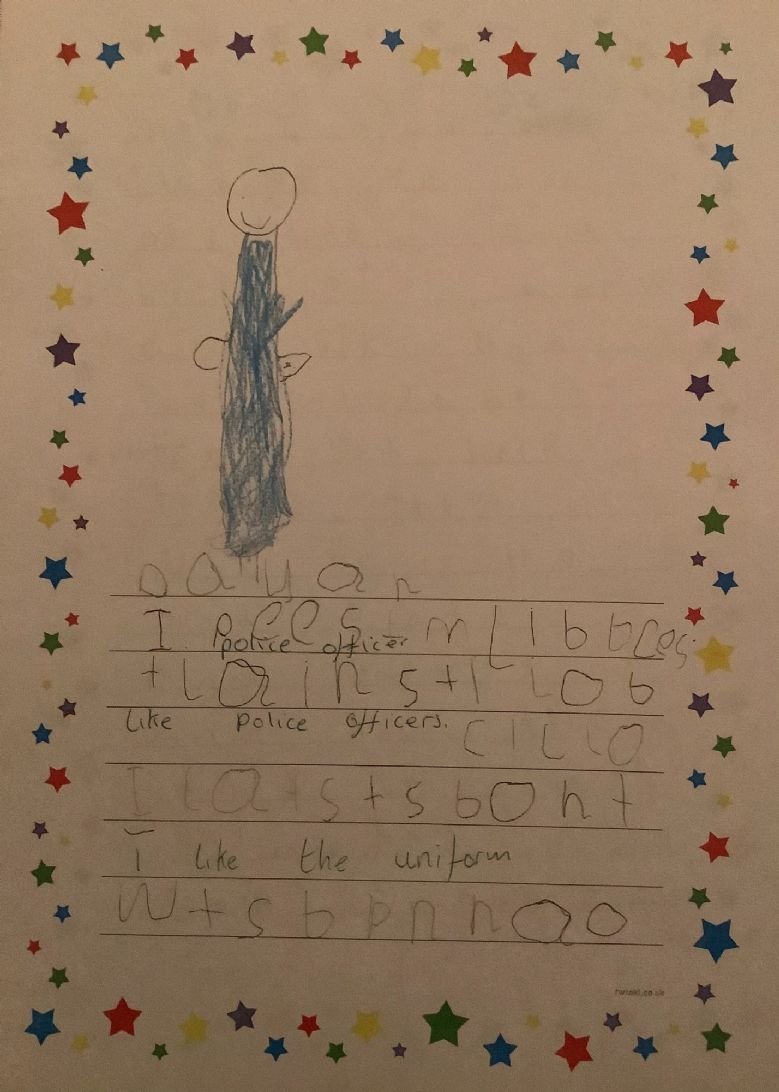 Dayan
I pees m l i b b ces
police officer
+ l a i n s + i l o b
like police officers.
c i l l o
I l a t s + s b o n t
I like the uniform
w + s b p n n a o
twinkl.co.uk